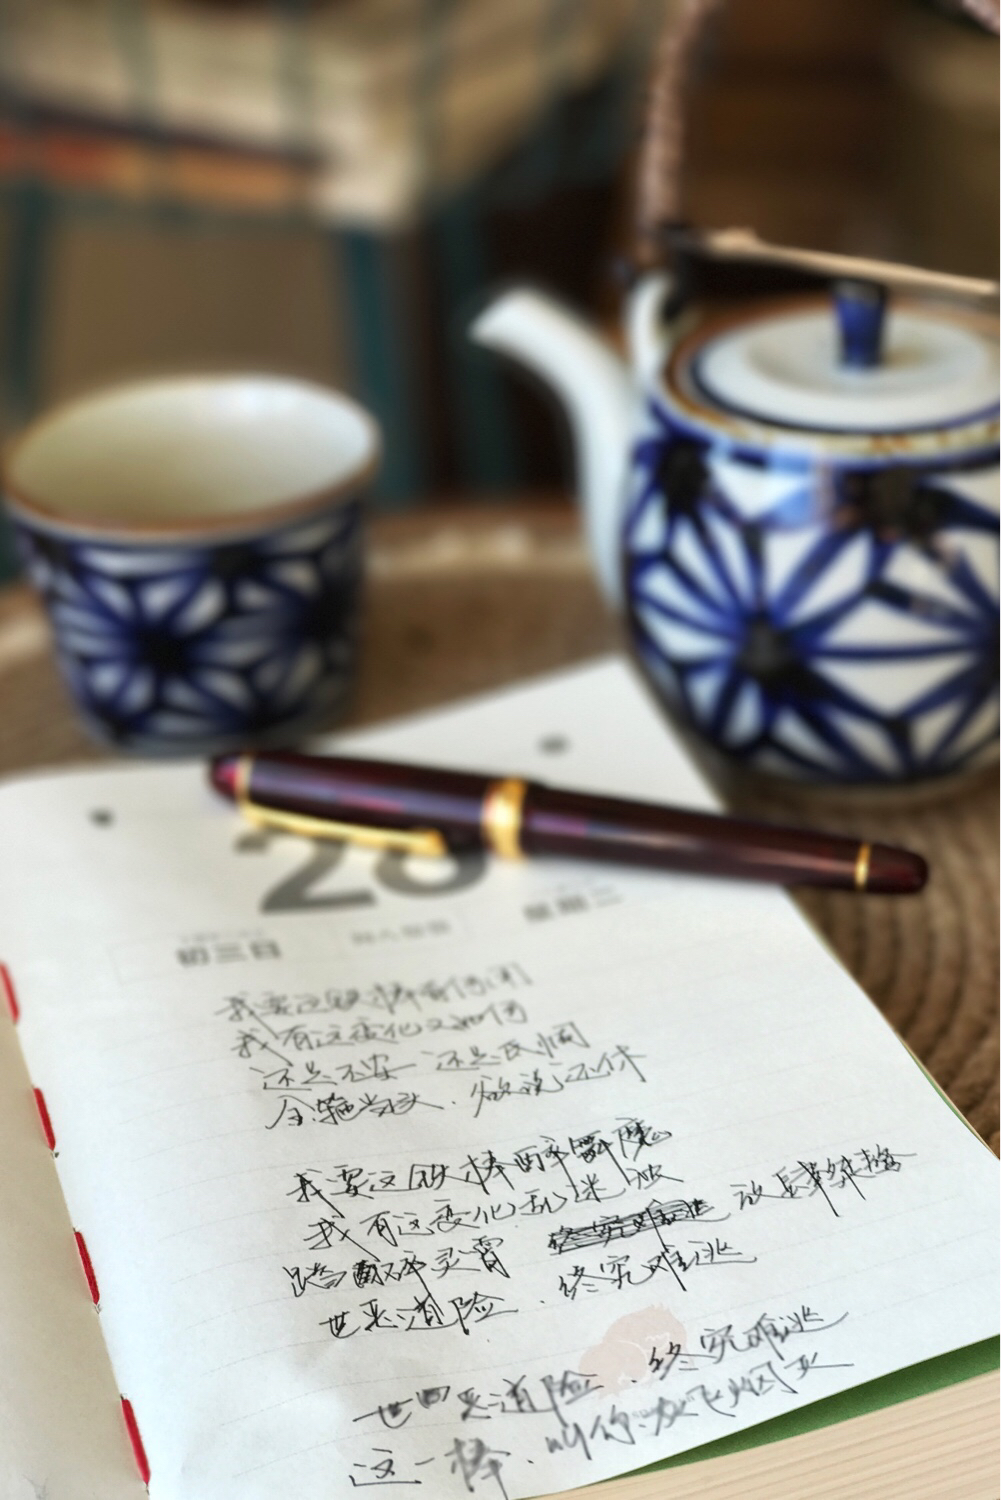 初三日 星期二
我要这铁棒有何用
我有这变化又如何
还是不安 还是氐惆
金箍当头.欲说还休
我要这铁棒醉舞魔
我有这变化乱迷浊
踏碎灵霄 放肆桀骜
世恶道险.终究难逃
世恶道险.终究难逃
这一棒.叫你灰飞烟灭